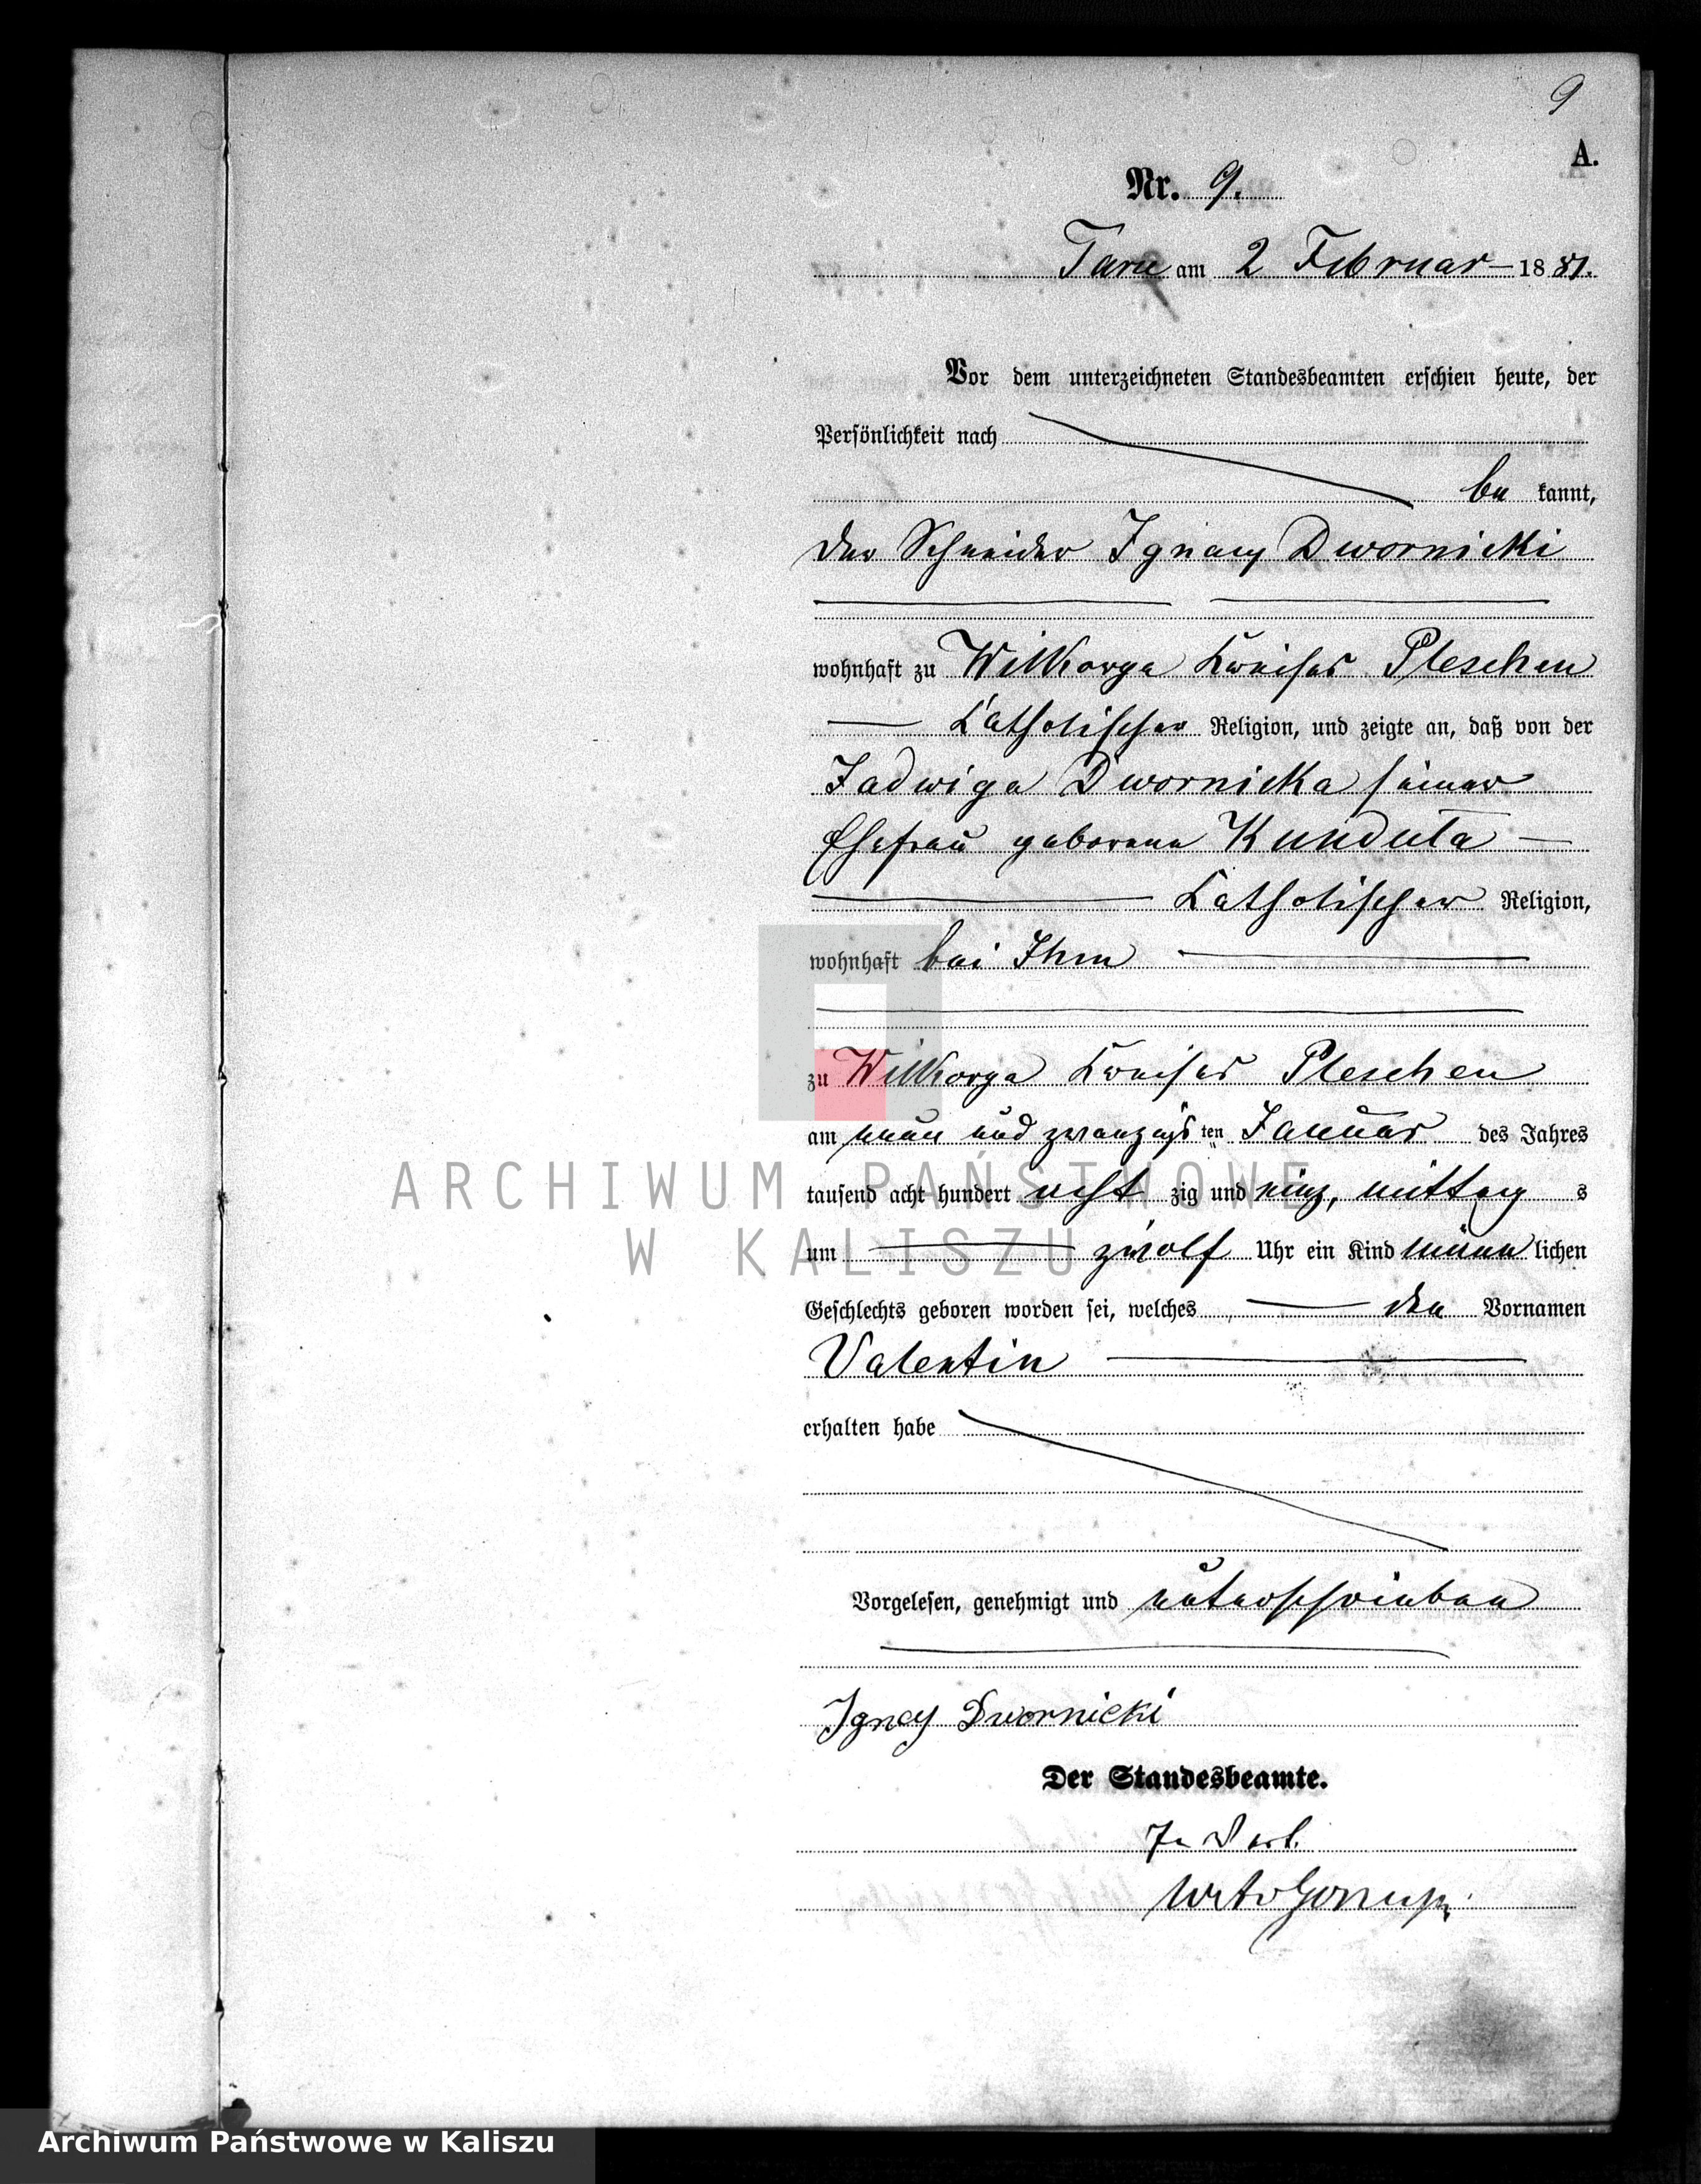 9
A.
Nr. 9.
Tarce am 2 Februar 1881.
Vor dem unterzeichneten Standesbeamten erschien heute, der
Persönlichkeit nach
be kannt,
der Schneider Ignacy Dwornicki
wohnhaft zu Wilkowya Kreises Pleschen
katholischer Religion, und zeigte an, daß von der
Jadwiga Dwornicka seiner
Ehefrau geborene Kunduta
katholischer Religion,
wohnhaft bei Ihm
zu Wilkowya Kreises Pleschen
am neun und zwanzigs ten Januar des Jahres
tausend acht hundert acht zig und eins, mittag s
um zwölf Uhr ein Kind männ lichen
Geschlechts geboren worden sei, welches den Vornamen
Valentin
erhalten habe
Vorgelesen, genehmigt und unterschrieben
Ignacy Dwornicki
Der Standesbeamte.
In Vert.
ARCHIWUM PAŃSTWOWE
W KALISZU
Archiwum Państwowe w Kaliszu